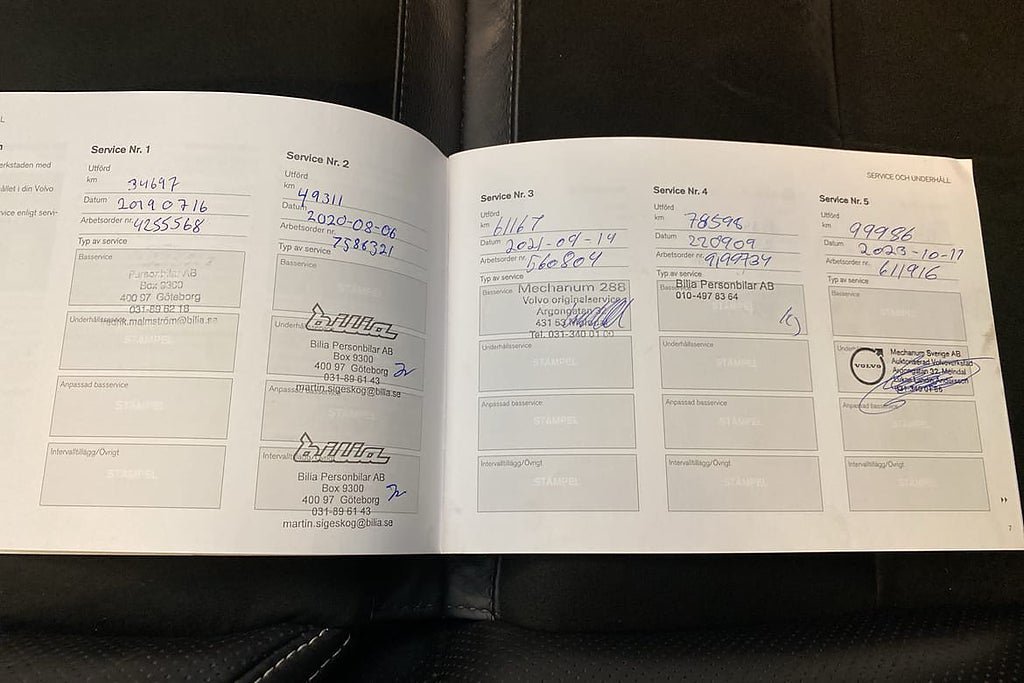 erkstaden med
ållet i din Volvo
vice enligt servi-
Service Nr. 1
Utförd
km 34697
Datum 20190716
Arbetsorder nr. 4255568
Typ av service
Basservice
Personbilar AB
Box 9300
400 97 Göteborg
031-89 62 18
fredrik.malmström@bilia.se
STÄMPEL
Anpassad basservice
STÄMPEL
Intervalltillägg/Övrigt
STÄMPEL
Service Nr. 2
Utförd
km 49311
Datum 2020-08-06
Arbetsorder nr. 7586321
Typ av service
Basservice
STÄMPEL
bilia
Bilia Personbilar AB
Box 9300
400 97 Göteborg
031-89 61 43
martin.sigeskog@bilia.se
STÄMPEL
bilia
Bilia Personbilar AB
Box 9300
400 97 Göteborg
031-89 61 43
martin.sigeskog@bilia.se
Service Nr. 3
Utförd
km 61167
Datum 2021-09-14
Arbetsorder nr. 560804
Typ av service
Basservice
Mechanum 288
Volvo originalservice
Argongatan
431 53 Mölndal
Tel. 031-340 01 00
Underhållsservice
STÄMPEL
Anpassad basservice
STÄMPEL
Intervalltillägg/Övrigt
STÄMPEL
Service Nr. 4
Utförd
km 78598
Datum 220909
Arbetsorder nr. 9199734
Typ av service
Basservice
Bilia Personbilar AB
010-497 83 64
Underhållsservice
STÄMPEL
Anpassad basservice
STÄMPEL
Intervalltillägg/Övrigt
STÄMPEL
SERVICE OCH UNDERHÅLL
Service Nr. 5
Utförd
km 99986
Datum 2023-10-17
Arbetsorder nr. 611916
Typ av service
Basservice
STÄMPEL
VOLVO
Mechanum Sverige AB
Auktoriserad Volvoverkstad
Argongatan 32, Mölndal
031-340 01 55
Anpassad basservice
STÄMPEL
Intervalltillägg/Övrigt
STÄMPEL
7